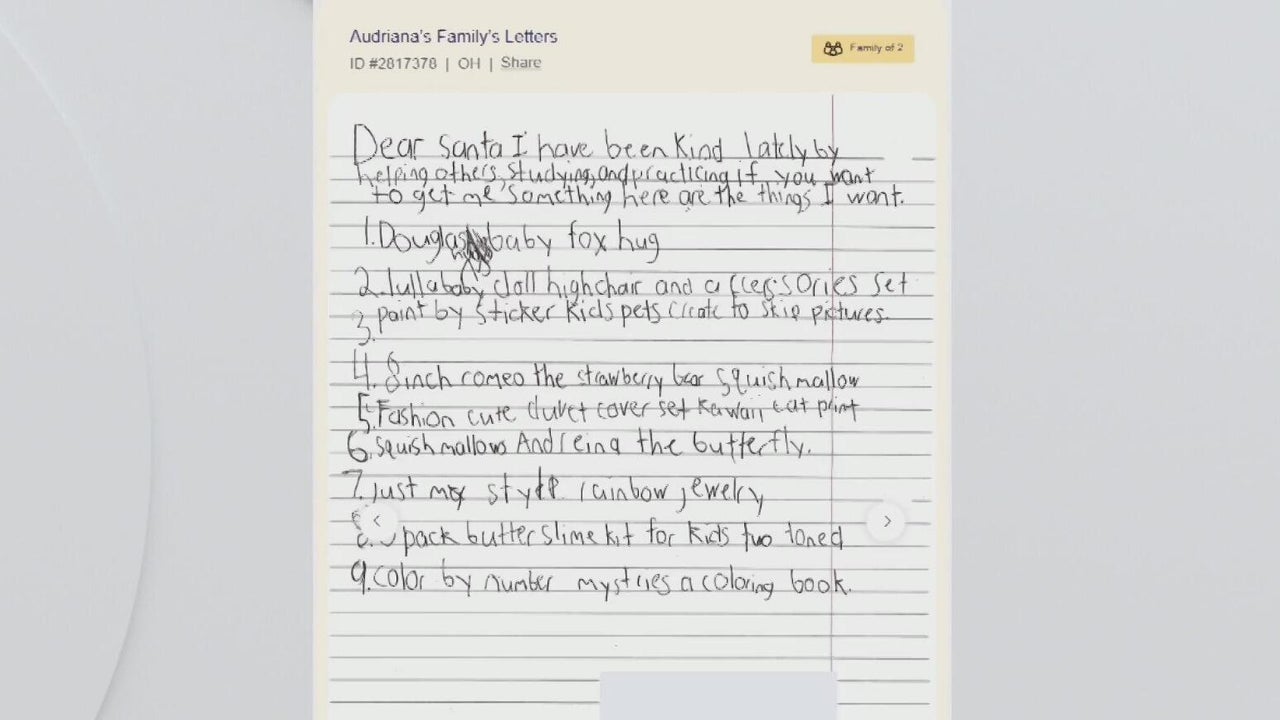 Audriana's Family's Letters
Family of 2
ID #2817378 | OH | Share
Dear Santa I have been Kind lately by
helping others, studying, and practicing if you want
to get me something here are the things I want.
1. Douglas baby fox hug
2. lullababy doll highchair and accessories set
3. paint by sticker Kids pets create to skip pictures.
4. 8 inch romeo the strawberry bear squishmallow
5. Fashion cute duvet cover set Kawaii cat print
6. squishmallows Andreina the butterfly.
7. Just my style rainbow jewelry
8. pack butter slime kit for kids two toned
9. color by number mystries a coloring book.